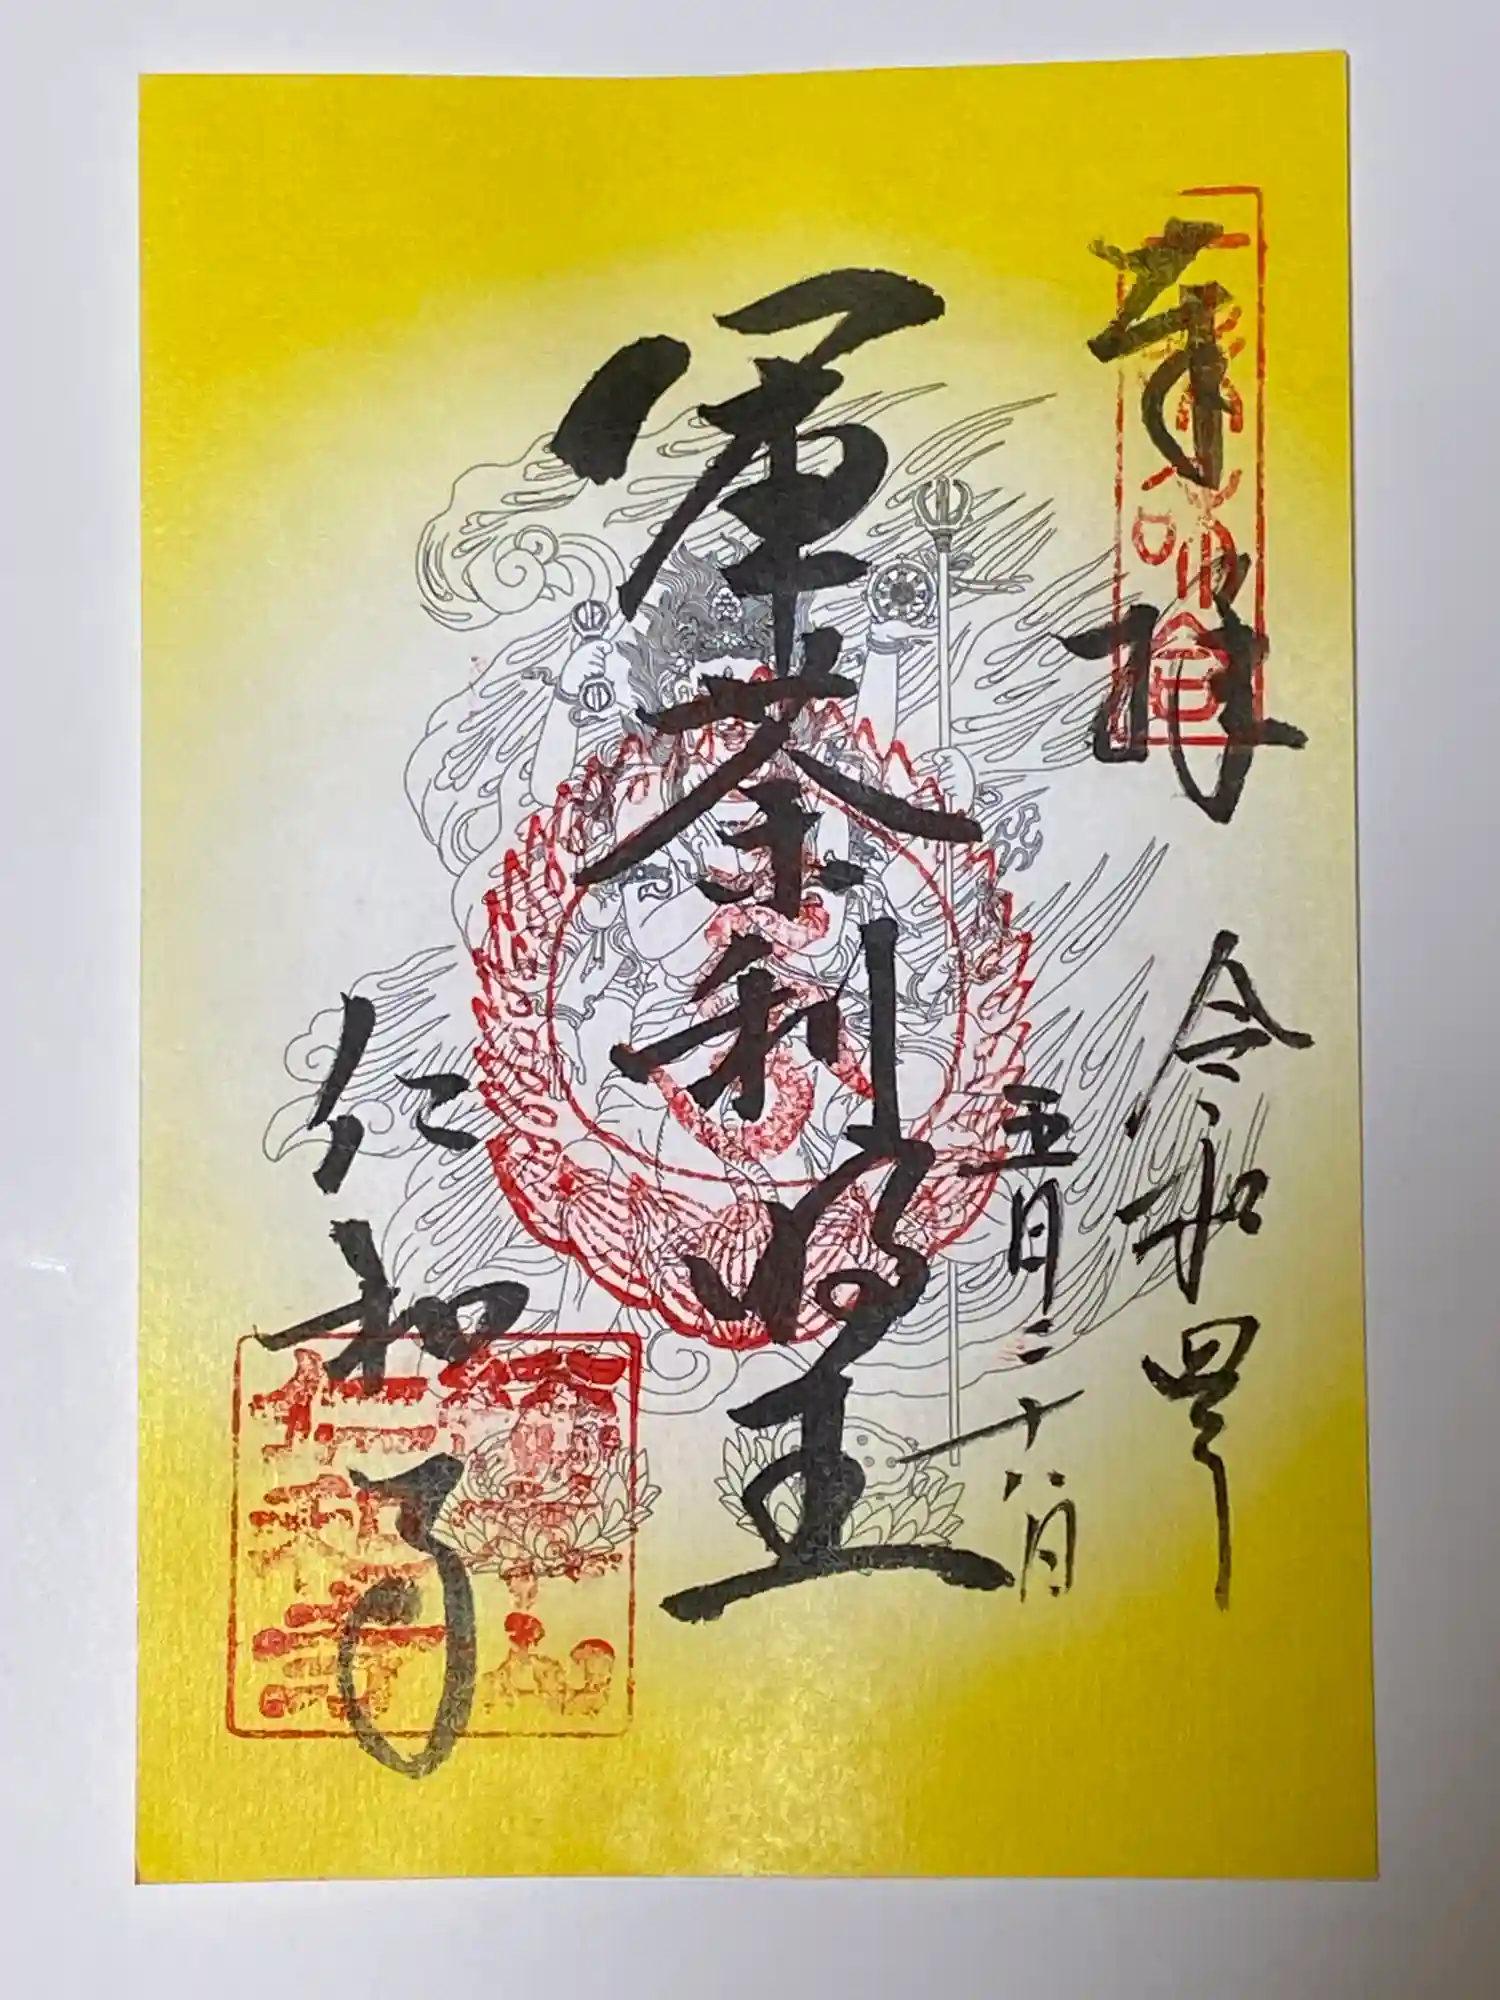 奉拝
令和四年
五月二十八日
軍荼利明王
仁和寺